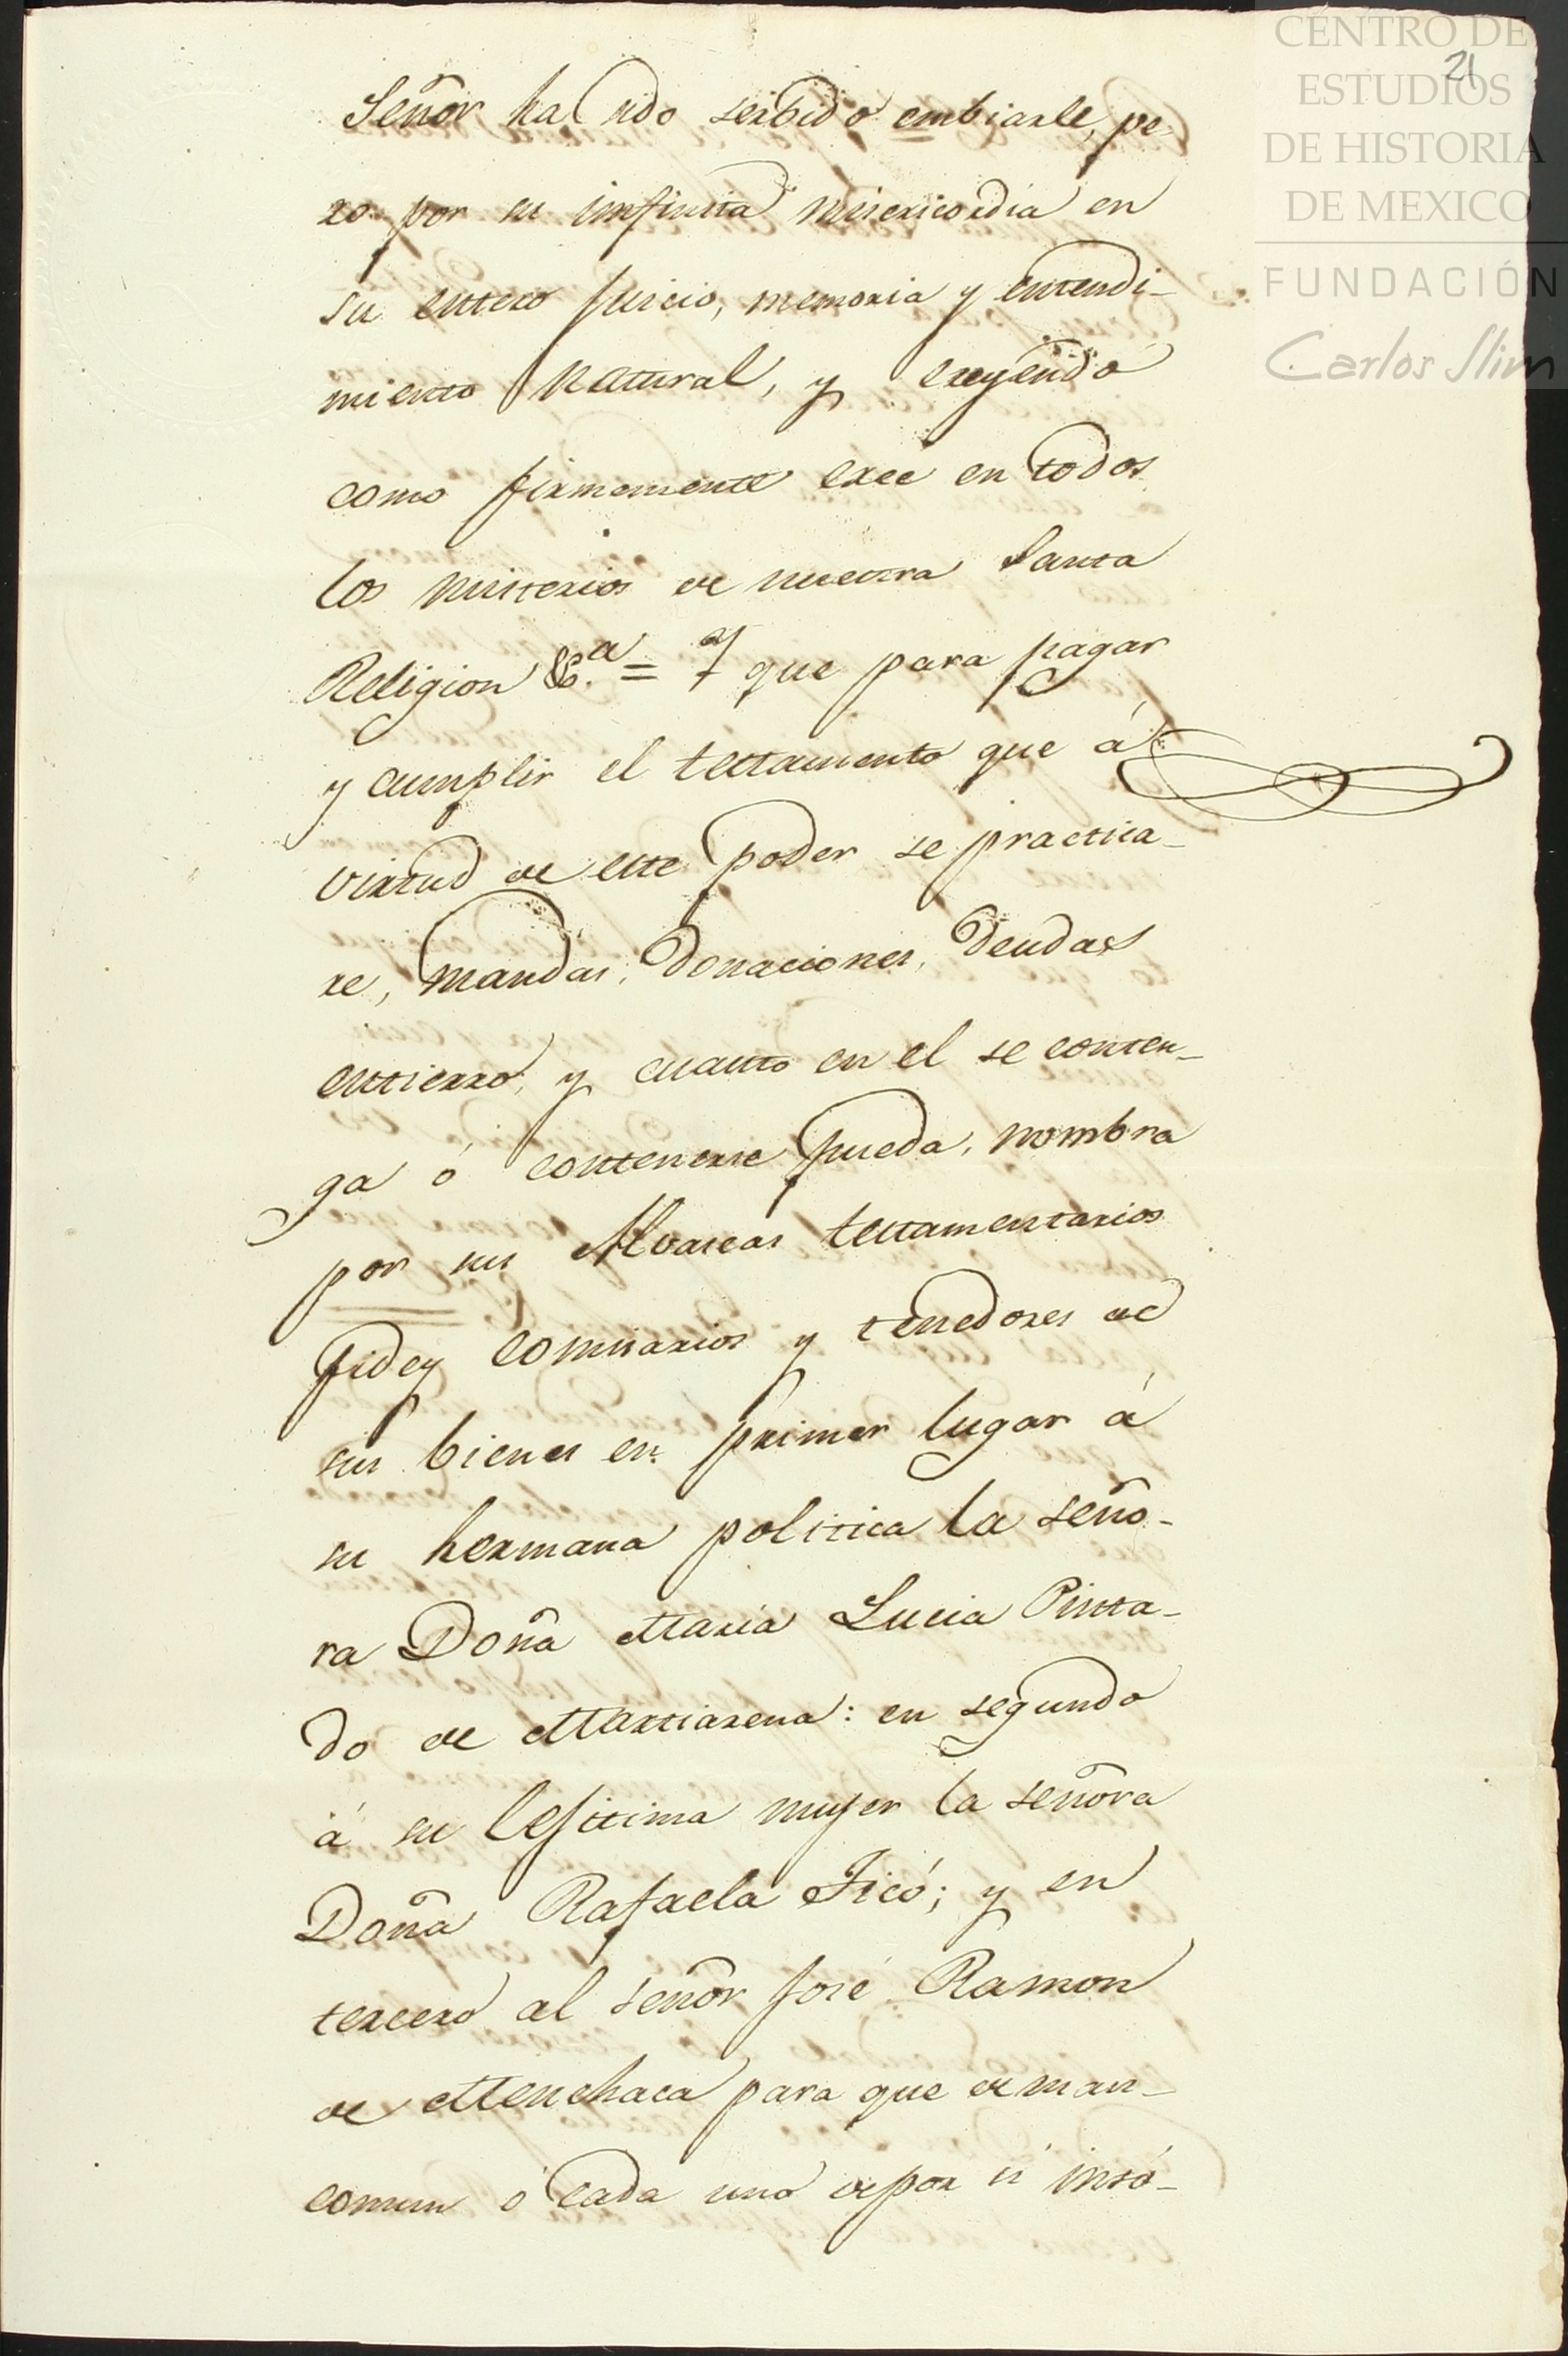 CENTRO DE
ESTUDIOS
DE HISTORIA
DE MEXICO
FUNDACIÓN
Carlos Slim
21
Señor ha sido serbido embiarle, pe-
ro por su infinita misericordia en
su entero juicio, memoria y entendi-
miento natural, y creyendo
como firmemente cree en todos
los misterios de nuestra Santa
Religion &.a = Y que para pagar
y cumplir el testamento que á
virtud de este poder se practica-
re, mandas, donaciones, deudas
entierro, y cuanto en el se conten-
ga ó contenerse pueda, nombra
por sus Alvaceas testamentarios
fidey comisarios y tenedores de
sus bienes en primer lugar á
su hermana politica la seño-
ra Doña Maria Lucia Pinta-
do de Martiarena: en segundo
á su lejitima mujer la señora
Doña Rafaela Ficó; y en
tercero al señor José Ramon
de Menchaca para que de man-
comun ó cada uno de por si insó-